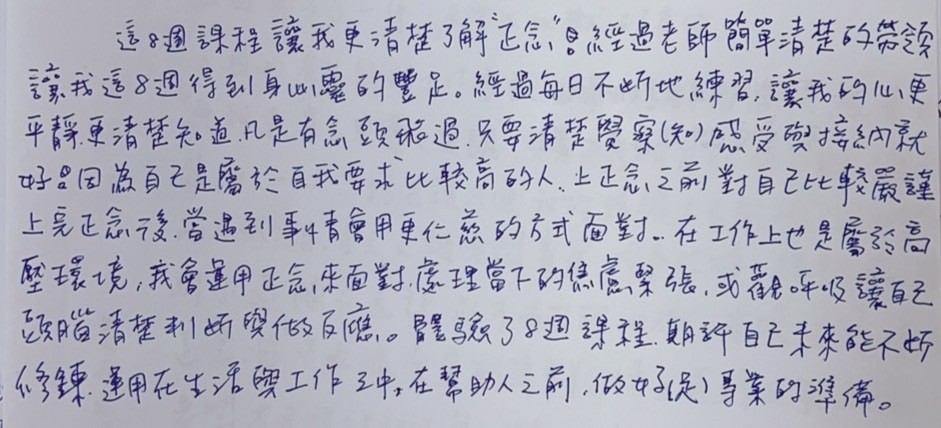 這8週課程讓我更清楚了解"正念"。經過老師簡單清楚的帶領
讓我這8週得到身心靈的豐足。經過每日不斷地練習,讓我的心更
平靜.更清楚知道.凡是有念頭飛過.只要清楚覺察(知)感受與接納就
好。因為自己是屬於自我要求比較高的人.上正念之前對自己比較嚴謹
上完正念後.當遇到事情會用更仁慈的方式面對.。在工作上也是屬於高
壓環境,我會運用正念來面對.處理當下的焦慮緊張.或觀呼吸讓自己
頭腦清楚判斷與做反應。體驗了8週課程.期許自己未來能不斷
修鍊.運用在生活與工作之中。在幫助人之前.做好(足)專業的準備。